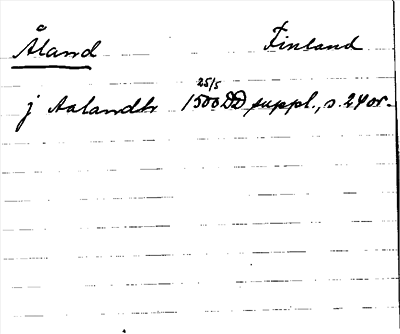 Åland Finland
j Aalandhr 25/5 1500 DD suppl., s. 24 or.